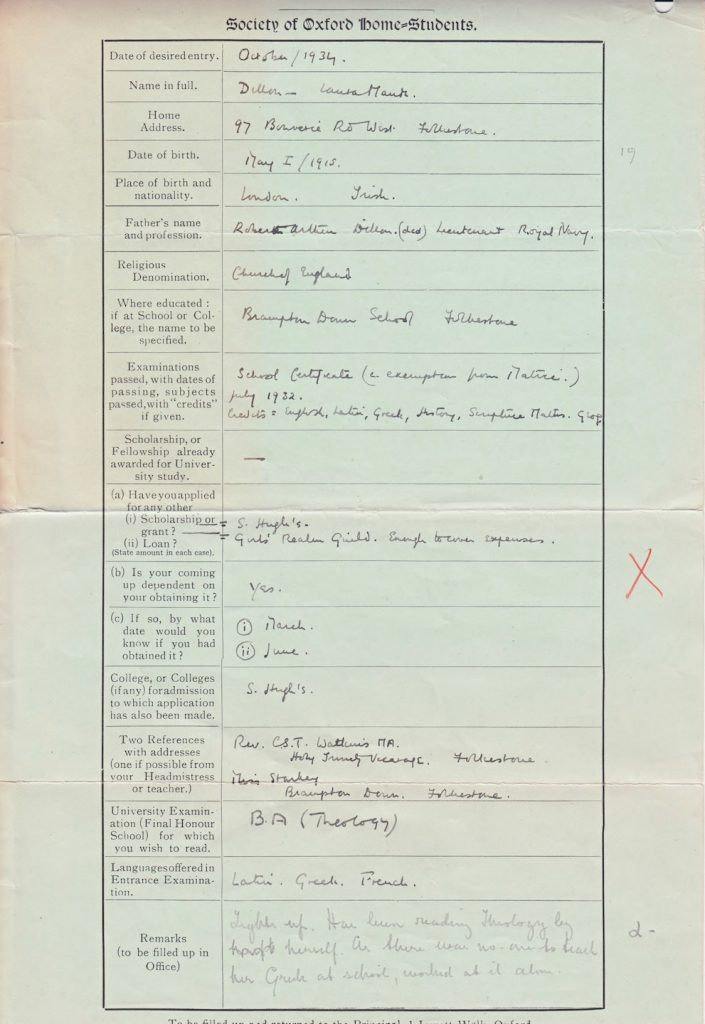 Society of Oxford Home=Students.
Date of desired entry. October / 1934.
Name in full. Dillon – Laura Maude.
Home
Address. 97 Bouverie Rd West. Folkestone.
Date of birth. May I / 1915.
19
Place of birth and
nationality. London. Irish.
Father's name
and profession. Robert Arthur Dillon. (ded) Lieutenant Royal Navy.
Religious
Denomination. Church of England
Where educated :
if at School or Col-
lege, the name to be
specified.
Brampton Down School Folkestone
Examinations
passed, with dates of
passing, subjects
passed, with "credits"
if given.
School Certificate (c exemption from Matric.)
July 1932.
Credits = English, Latin, Greek, History, Scripture Maths. Geog
Scholarship, or
Fellowship already
awarded for Univer-
sity study.
—
(a) Have you applied
for any other
(i) Scholarship or = S. Hugh's.
grant ? = Girls' Realm Guild. Enough to cover expenses.
(ii) Loan ?
(State amount in each case).
X
(b) Is your coming
up dependent on
your obtaining it ?
Yes.
(c) If so, by what
date would you
know if you had
obtained it ?
(i) March.
(ii) June.
College, or Colleges
(if any) for admission
to which application
has also been made.
S. Hugh's.
Two References
with addresses
(one if possible from
your Headmistress
or teacher.)
Rev. C.S.T. Watkins MA.
Holy Trinity Vicarage. Folkestone.
Miss Starkey
Brampton Down. Folkestone.
University Examin-
ation (Final Honour
School) for which
you wish to read.
B.A (Theology)
Languages offered in
Entrance Examina-
tion.
Latin. Greek. French.
Remarks
(to be filled up in
Office)
up. Has been reading Theology by
herself. As there was no-one to teach
her Greek at school, worked at it alone.
2-
To be filled up and returned to the Principal, 1 Jowett Walk, Oxford.